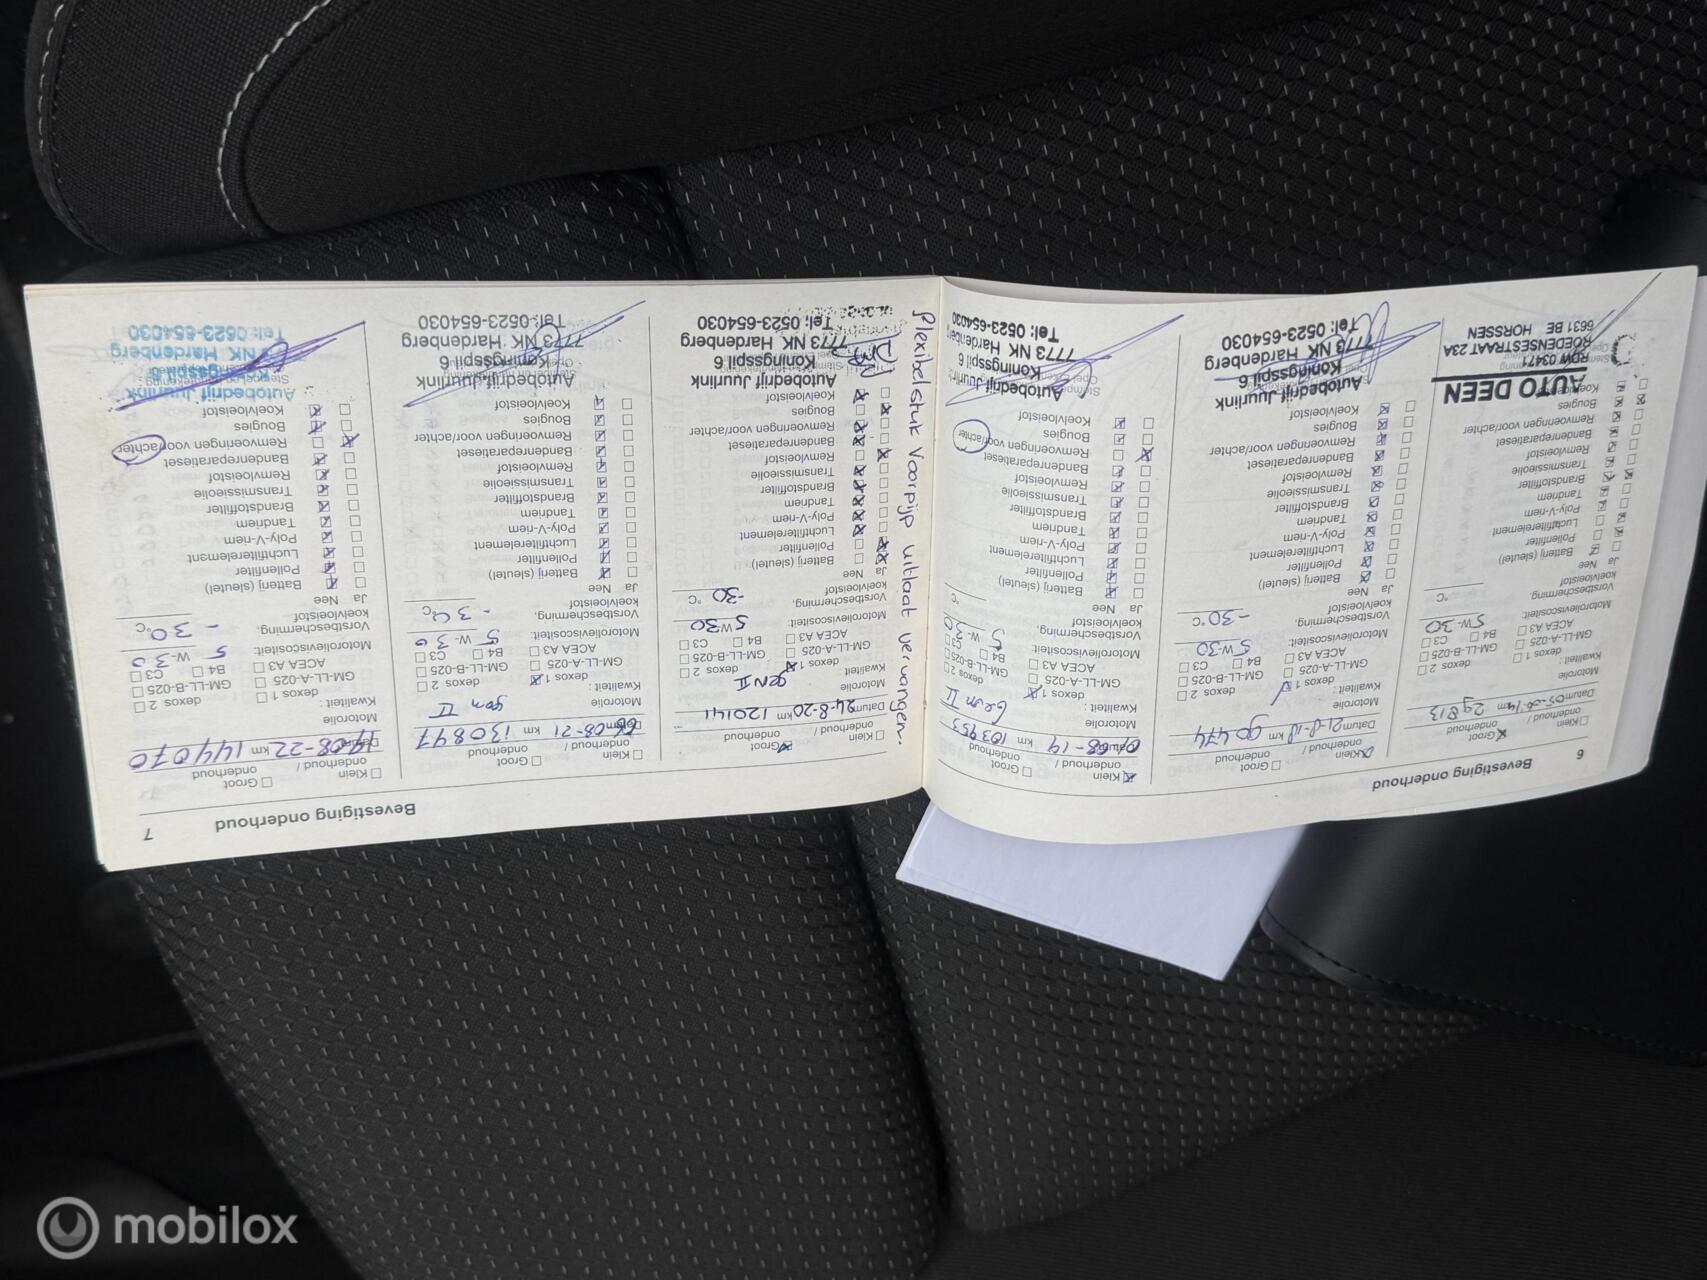 6
Bevestiging onderhoud
Klein onderhoud / Groot onderhoud
Datum km 29813
Motorolie
Kwaliteit :
dexos 1 dexos 2
GM-LL-A-025 GM-LL-B-025
ACEA A3 B4 C3
Motorolieviscositeit: 5W-30
Vorstbescherming.
koelvloeistof °C
Ja Nee
Batterij (sleutel)
Pollenfilter
Luchtfilterelement
Poly-V-riem
Tandriem
Brandstoffilter
Transmissieolie
Remvloeistof
Bandenreparatieset
Remvoeringen voor/achter
Bougies
Koelvloeistof
AUTO DEEN
RDW 03471
ROEDENSESTRAAT 23A
6631 BE HORSSEN
Klein onderhoud / Groot onderhoud
Datum 21-8-18 km 90474
Motorolie
Kwaliteit :
dexos 1 dexos 2
GM-LL-A-025 GM-LL-B-025
ACEA A3 B4 C3
Motorolieviscositeit: 5W30
Vorstbescherming.
koelvloeistof -30 °C
Ja Nee
Batterij (sleutel)
Pollenfilter
Luchtfilterelement
Poly-V-riem
Tandriem
Brandstoffilter
Transmissieolie
Remvloeistof
Bandenreparatieset
Remvoeringen voor/achter
Bougies
Koelvloeistof
Autobedrijf Juurlink
Koningsspil 6
7773 NK Hardenberg
Tel: 0523-654030
Klein onderhoud / Groot onderhoud
km 103955
Motorolie
Kwaliteit :
dexos 1 dexos 2
GM-LL-A-025 GM-LL-B-025
ACEA A3 B4 C3
Motorolieviscositeit: 5 W-30
Vorstbescherming.
koelvloeistof °C
Ja Nee
Batterij (sleutel)
Pollenfilter
Luchtfilterelement
Poly-V-riem
Tandriem
Brandstoffilter
Transmissieolie
Remvloeistof
Bandenreparatieset
Remvoeringen voor/achter
Bougies
Koelvloeistof
Autobedrijf Juurlink
Koningsspil 6
7773 NK Hardenberg
Tel: 0523-654030
Plexibelstuk voorpijp uitlaat vervangen.
Bevestiging onderhoud
7
Klein onderhoud / Groot onderhoud
Datum 24-8-20 km 120141
Motorolie
Kwaliteit : gen II
dexos 1 dexos 2
GM-LL-A-025 GM-LL-B-025
ACEA A3 B4 C3
Motorolieviscositeit: 5W30
Vorstbescherming.
koelvloeistof -30 °C
Ja Nee
Batterij (sleutel)
Pollenfilter
Luchtfilterelement
Poly-V-riem
Tandriem
Brandstoffilter
Transmissieolie
Remvloeistof
Bandenreparatieset
Remvoeringen voor/achter
Bougies
Koelvloeistof
Autobedrijf Juurlink
Koningsspil 6
7773 NK Hardenberg
Tel: 0523-654030
Klein onderhoud / Groot onderhoud
08-21 km 130847
Motorolie
Kwaliteit : gen II
dexos 1 dexos 2
GM-LL-A-025 GM-LL-B-025
ACEA A3 B4 C3
Motorolieviscositeit: 5 W-30
Vorstbescherming.
koelvloeistof °C
Ja Nee
Batterij (sleutel)
Pollenfilter
Luchtfilterelement
Poly-V-riem
Tandriem
Brandstoffilter
Transmissieolie
Remvloeistof
Bandenreparatieset
Remvoeringen voor/achter
Bougies
Koelvloeistof
Autobedrijf Juurlink
Koningsspil 6
7773 NK Hardenberg
Tel: 0523-654030
Klein onderhoud / Groot onderhoud
08-22 km 144070
Motorolie
Kwaliteit :
dexos 1 dexos 2
GM-LL-A-025 GM-LL-B-025
ACEA A3 B4 C3
Motorolieviscositeit: 5 W-30
Vorstbescherming.
koelvloeistof -30 °C
Ja Nee
Batterij (sleutel)
Pollenfilter
Luchtfilterelement
Poly-V-riem
Tandriem
Brandstoffilter
Transmissieolie
Remvloeistof
Bandenreparatieset
Remvoeringen voor/achter
Bougies
Koelvloeistof
Autobedrijf Juurlink
Koningsspil 6
7773 NK Hardenberg
Tel: 0523-654030
mobilox